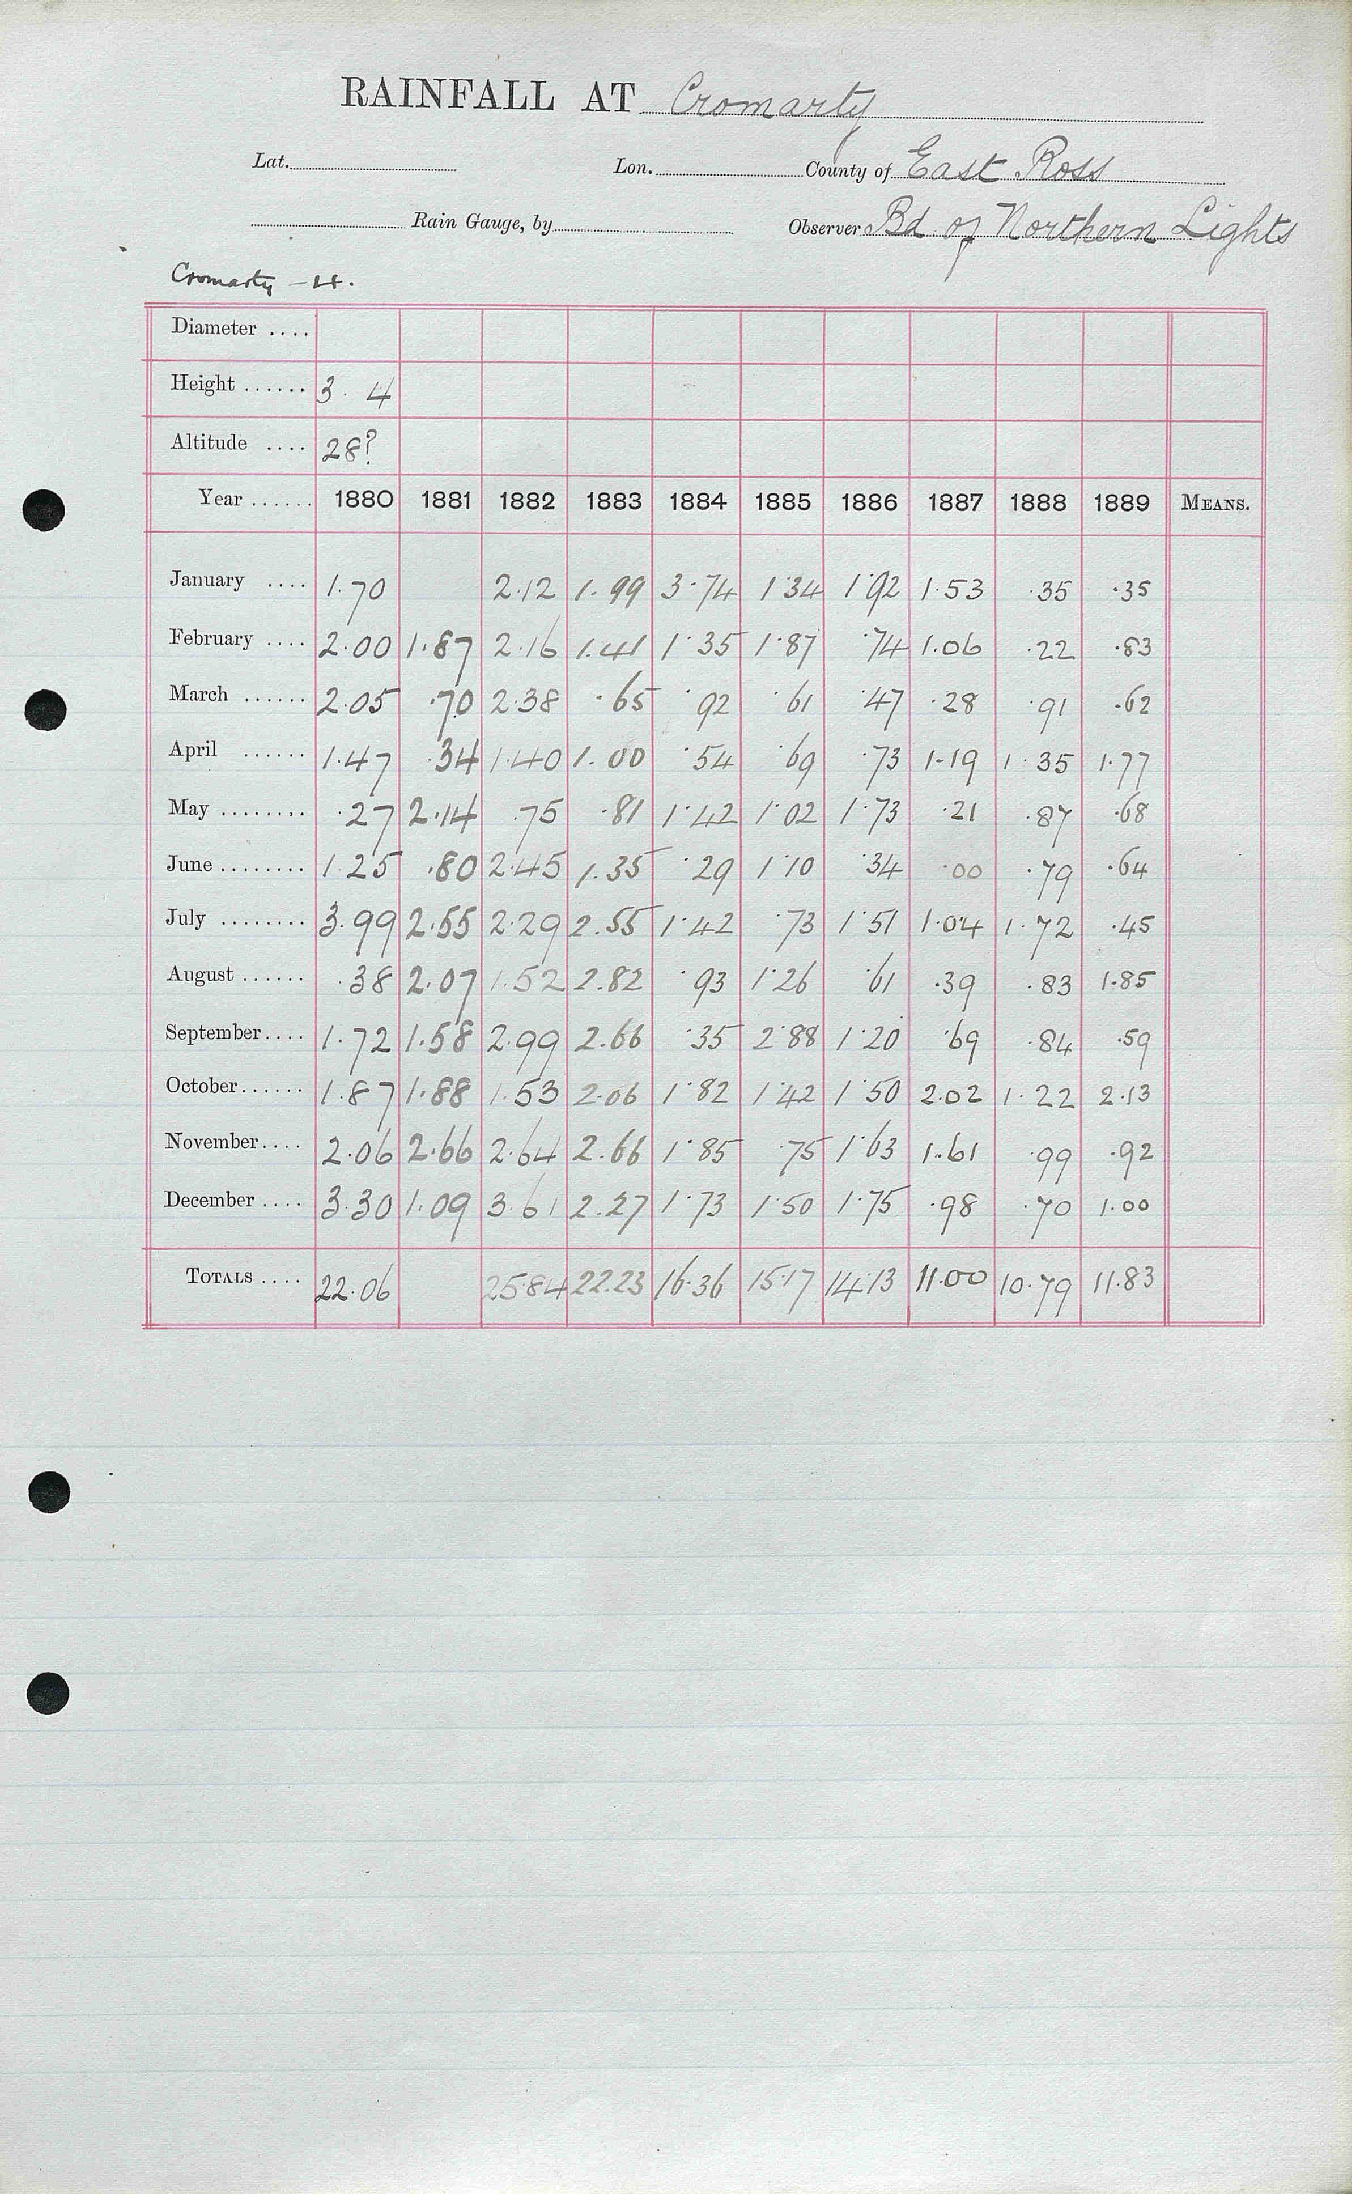 RAINFALL AT Cromarty
Lat. Lon. County of East Ross
Rain Gauge, by Observer Bd of Northern Lights
Cromarty - H.
Diameter ....
Height ...... 3. 4
Altitude .... 28?
Year ...... 1880 1881 1882 1883 1884 1885 1886 1887 1888 1889 MEANS.
January .... 1.70 2.12 1.99 3.74 1.34 1.92 1.53 .35 .35
February .... 2.00 1.87 2.16 1.41 1.35 1.87 .74 1.06 .22 .83
March ...... 2.05 .70 2.38 .65 .92 .61 .47 .28 .91 .62
April ...... 1.47 .34 1.40 1.00 .54 .69 .73 1.19 1.35 1.77
May ........ .27 2.14 .75 .81 1.42 1.02 1.73 .21 .87 .68
June ........ 1.25 .80 2.45 1.35 .29 1.10 .34 .00 .79 .64
July ........ 3.99 2.55 2.29 2.55 1.42 .73 1.51 1.04 1.72 .45
August ...... .38 2.07 1.52 2.82 .93 1.26 .61 .39 .83 1.85
September.... 1.72 1.58 2.99 2.66 .35 2.88 1.20 .69 .84 .59
October...... 1.87 1.88 1.53 2.06 1.82 1.42 1.50 2.02 1.22 2.13
November.... 2.06 2.66 2.64 2.66 1.85 .75 1.63 1.61 .99 .92
December .... 3.30 1.09 3.61 2.27 1.73 1.50 1.75 .98 .70 1.00
TOTALS .... 22.06 25.84 22.23 16.36 15.17 14.13 11.00 10.79 11.83